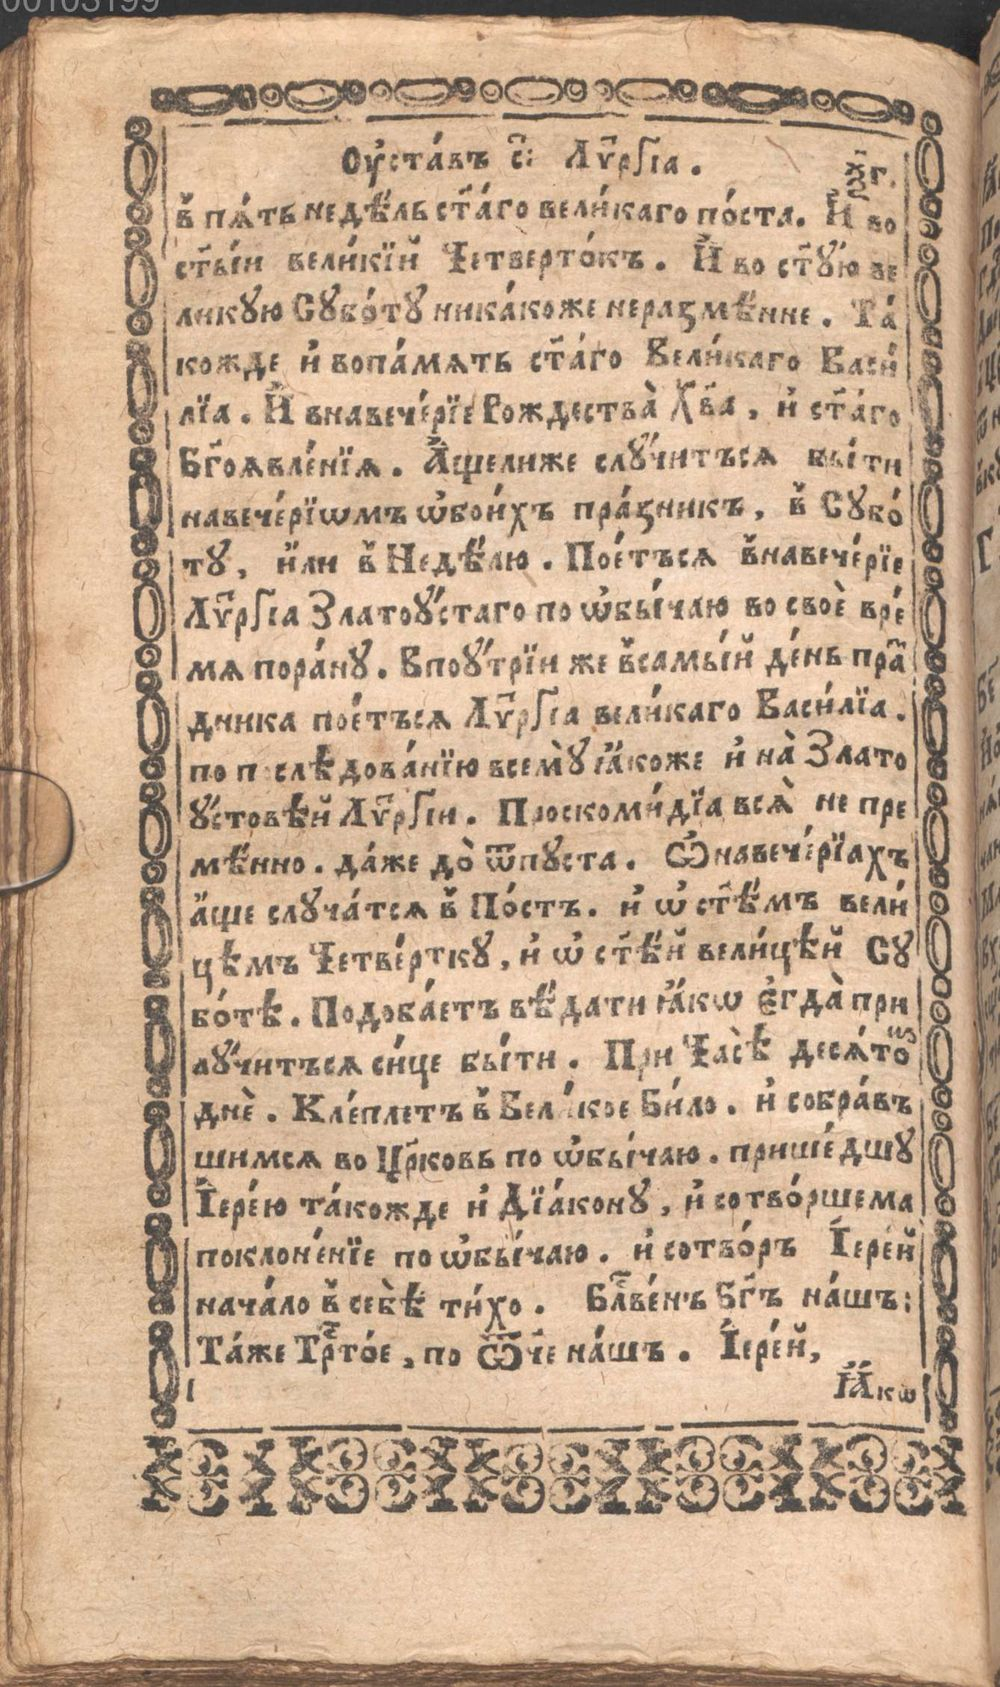 00103199
Оу҆ста́въ с҃: Лѵ҃ргїа.
в̾ пѧ́ть недѣ́ль ст҃а́го вели́каго по́ста. И҆ во
ст҃ы́и вели́кїй Четверто́къ. И҆ во ст҃ꙋ́ю ве
ликꙋю Сꙋбо́тꙋ ника́коже неразмѣ́нне. Та́
кожде и҆ вопа́мѧть ст҃а́го Вели́каго Васи́
лїа. И҆ внавече́рїе Рождества̀ Хв҃а, и҆ ст҃а́го
Бг҃оѧвле́нїѧ. А҆щелиже слꙋ́читъсѧ бы́ти
навече́рїѡмъ ѡ҆бои́хъ пра́зникъ, в̾ Сꙋбо́
тꙋ, и҆ли в̾ Недѣ́лю. Пое́тъсѧ в̾навече́рїе
Лѵ҃ргїа Златоꙋ́стаго по ѡ҆бы́чаю во своѐ вре́
мѧ пора́нꙋ. Впоꙋ́трїи же в̾самы́й де́нь пра҃
дника пое́тъсѧ Лѵ҃ргїа вели́каго Васи́лїа.
по послѣдова́нїю всемꙋ̀ ꙗ҆́коже и҆ на̀ Злато
ꙋ́стовѣй Лѵ҃ргїи. Проскоми́дїа всѧ̀ не пре
мѣ́нно. да́же до̀ ѿпꙋста. Ѡ҆ навече́рїахъ
а҆́ще слꙋча́тсѧ в̾ По́стъ. и҆ ѡ҆ ст҃ѣ́мъ вели́
цѣмъ Четве́рткꙋ, и҆ ѡ҆ ст҃ѣ́й вели́цѣй Сꙋ
бо́тѣ. Подоба́етъ вѣ́дати ꙗ҆́кѡ є҆гда̀ при
лꙋ́читъсѧ си́це бы́ти. При Часѣ̀ десѧ́то
днѐ. Кле́плетъ в̾ Вели́кое Би́ло. и҆ собра́въ
шимсѧ во Цр҃ковь по ѡ҆бы́чаю. прише́дшꙋ
І҆ере́ю та́кожде и҆ Дїа́конꙋ, и҆ сотво́ршема
поклоне́нїе по ѡ҆бы́чаю. и҆ сотво́ръ І҆ере́й
нача́ло в̾ себѣ̀ ти́хо. Бл҃ве́нъ Бг҃ъ на́шъ:
Та́же Тр҃то́е, по Ѿ҃че на́шъ. І҆ере́й,
Ꙗ҆́кѡ